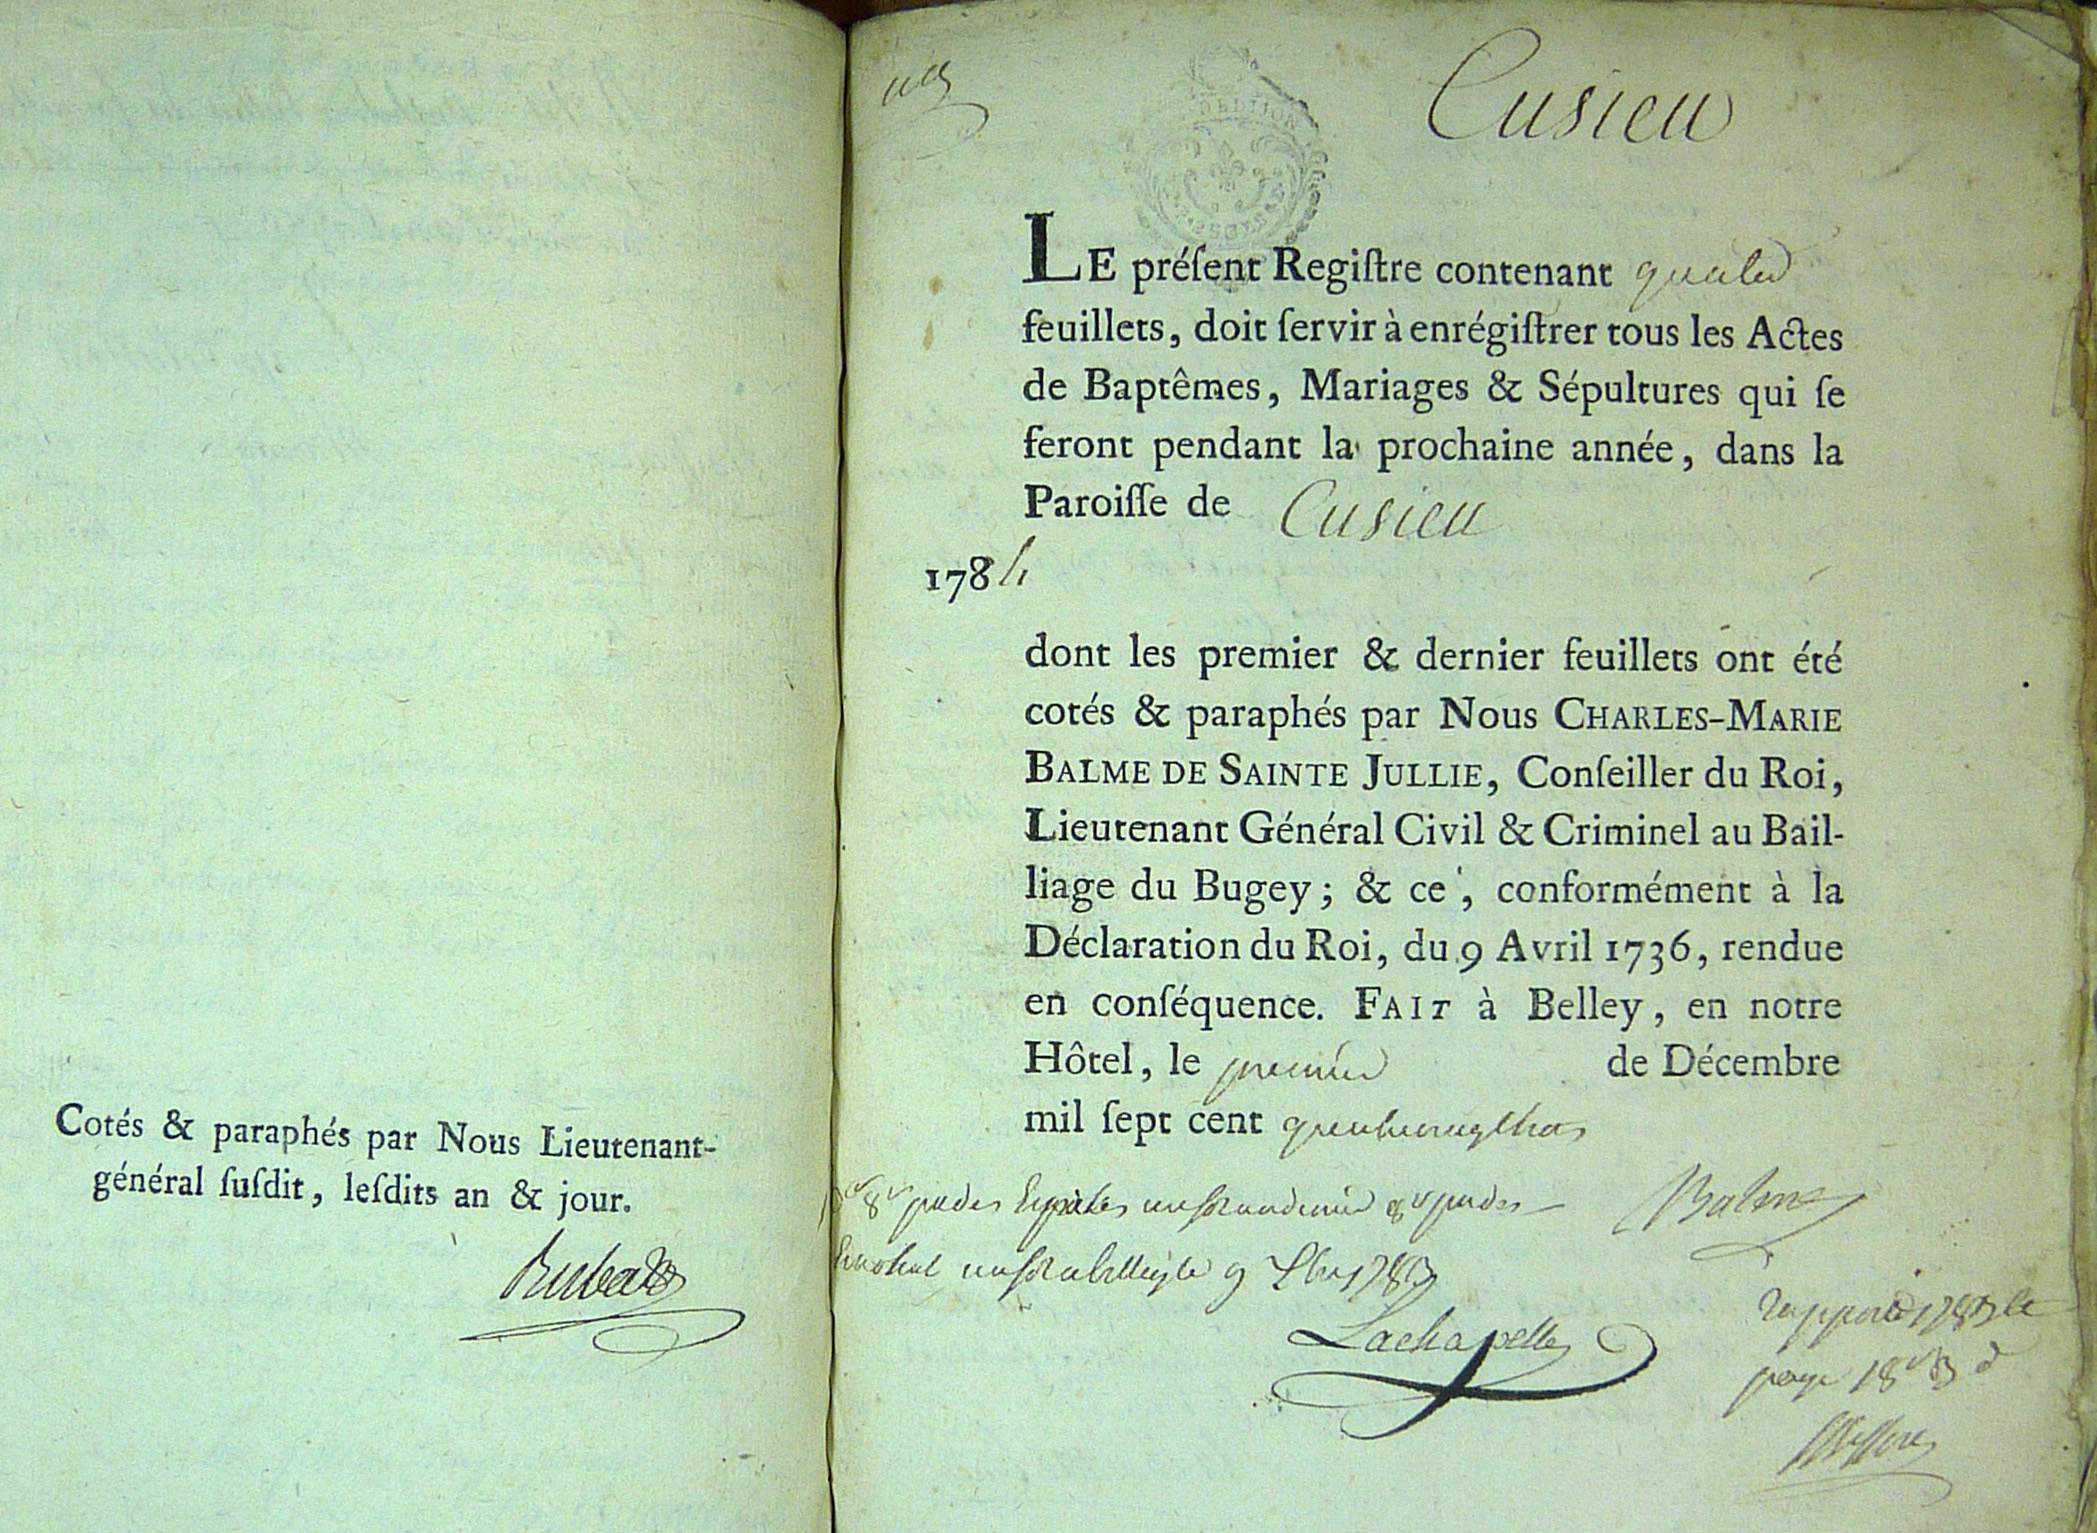 Cotés & paraphés par Nous Lieutenant-
général ſuſdit, leſdits an & jour.
Cusieu
LE préſent Regiſtre contenant quatre
feuillets, doit ſervir à enrégiſtrer tous les Actes
de Baptêmes, Mariages & Sépultures qui ſe
feront pendant la prochaine année, dans la
Paroiſſe de Cusieu
1784
dont les premier & dernier feuillets ont été
cotés & paraphés par Nous CHARLES-MARIE
BALME DE SAINTE JULLIE, Conſeiller du Roi,
Lieutenant Général Civil & Criminel au Bail-
liage du Bugey ; & ce, conformément à la
Déclaration du Roi, du 9 Avril 1736, rendue
en conſéquence. FAIT à Belley, en notre
Hôtel, le premier de Décembre
mil ſept cent quatrevingttrois
Balme
1783
Lachapelle